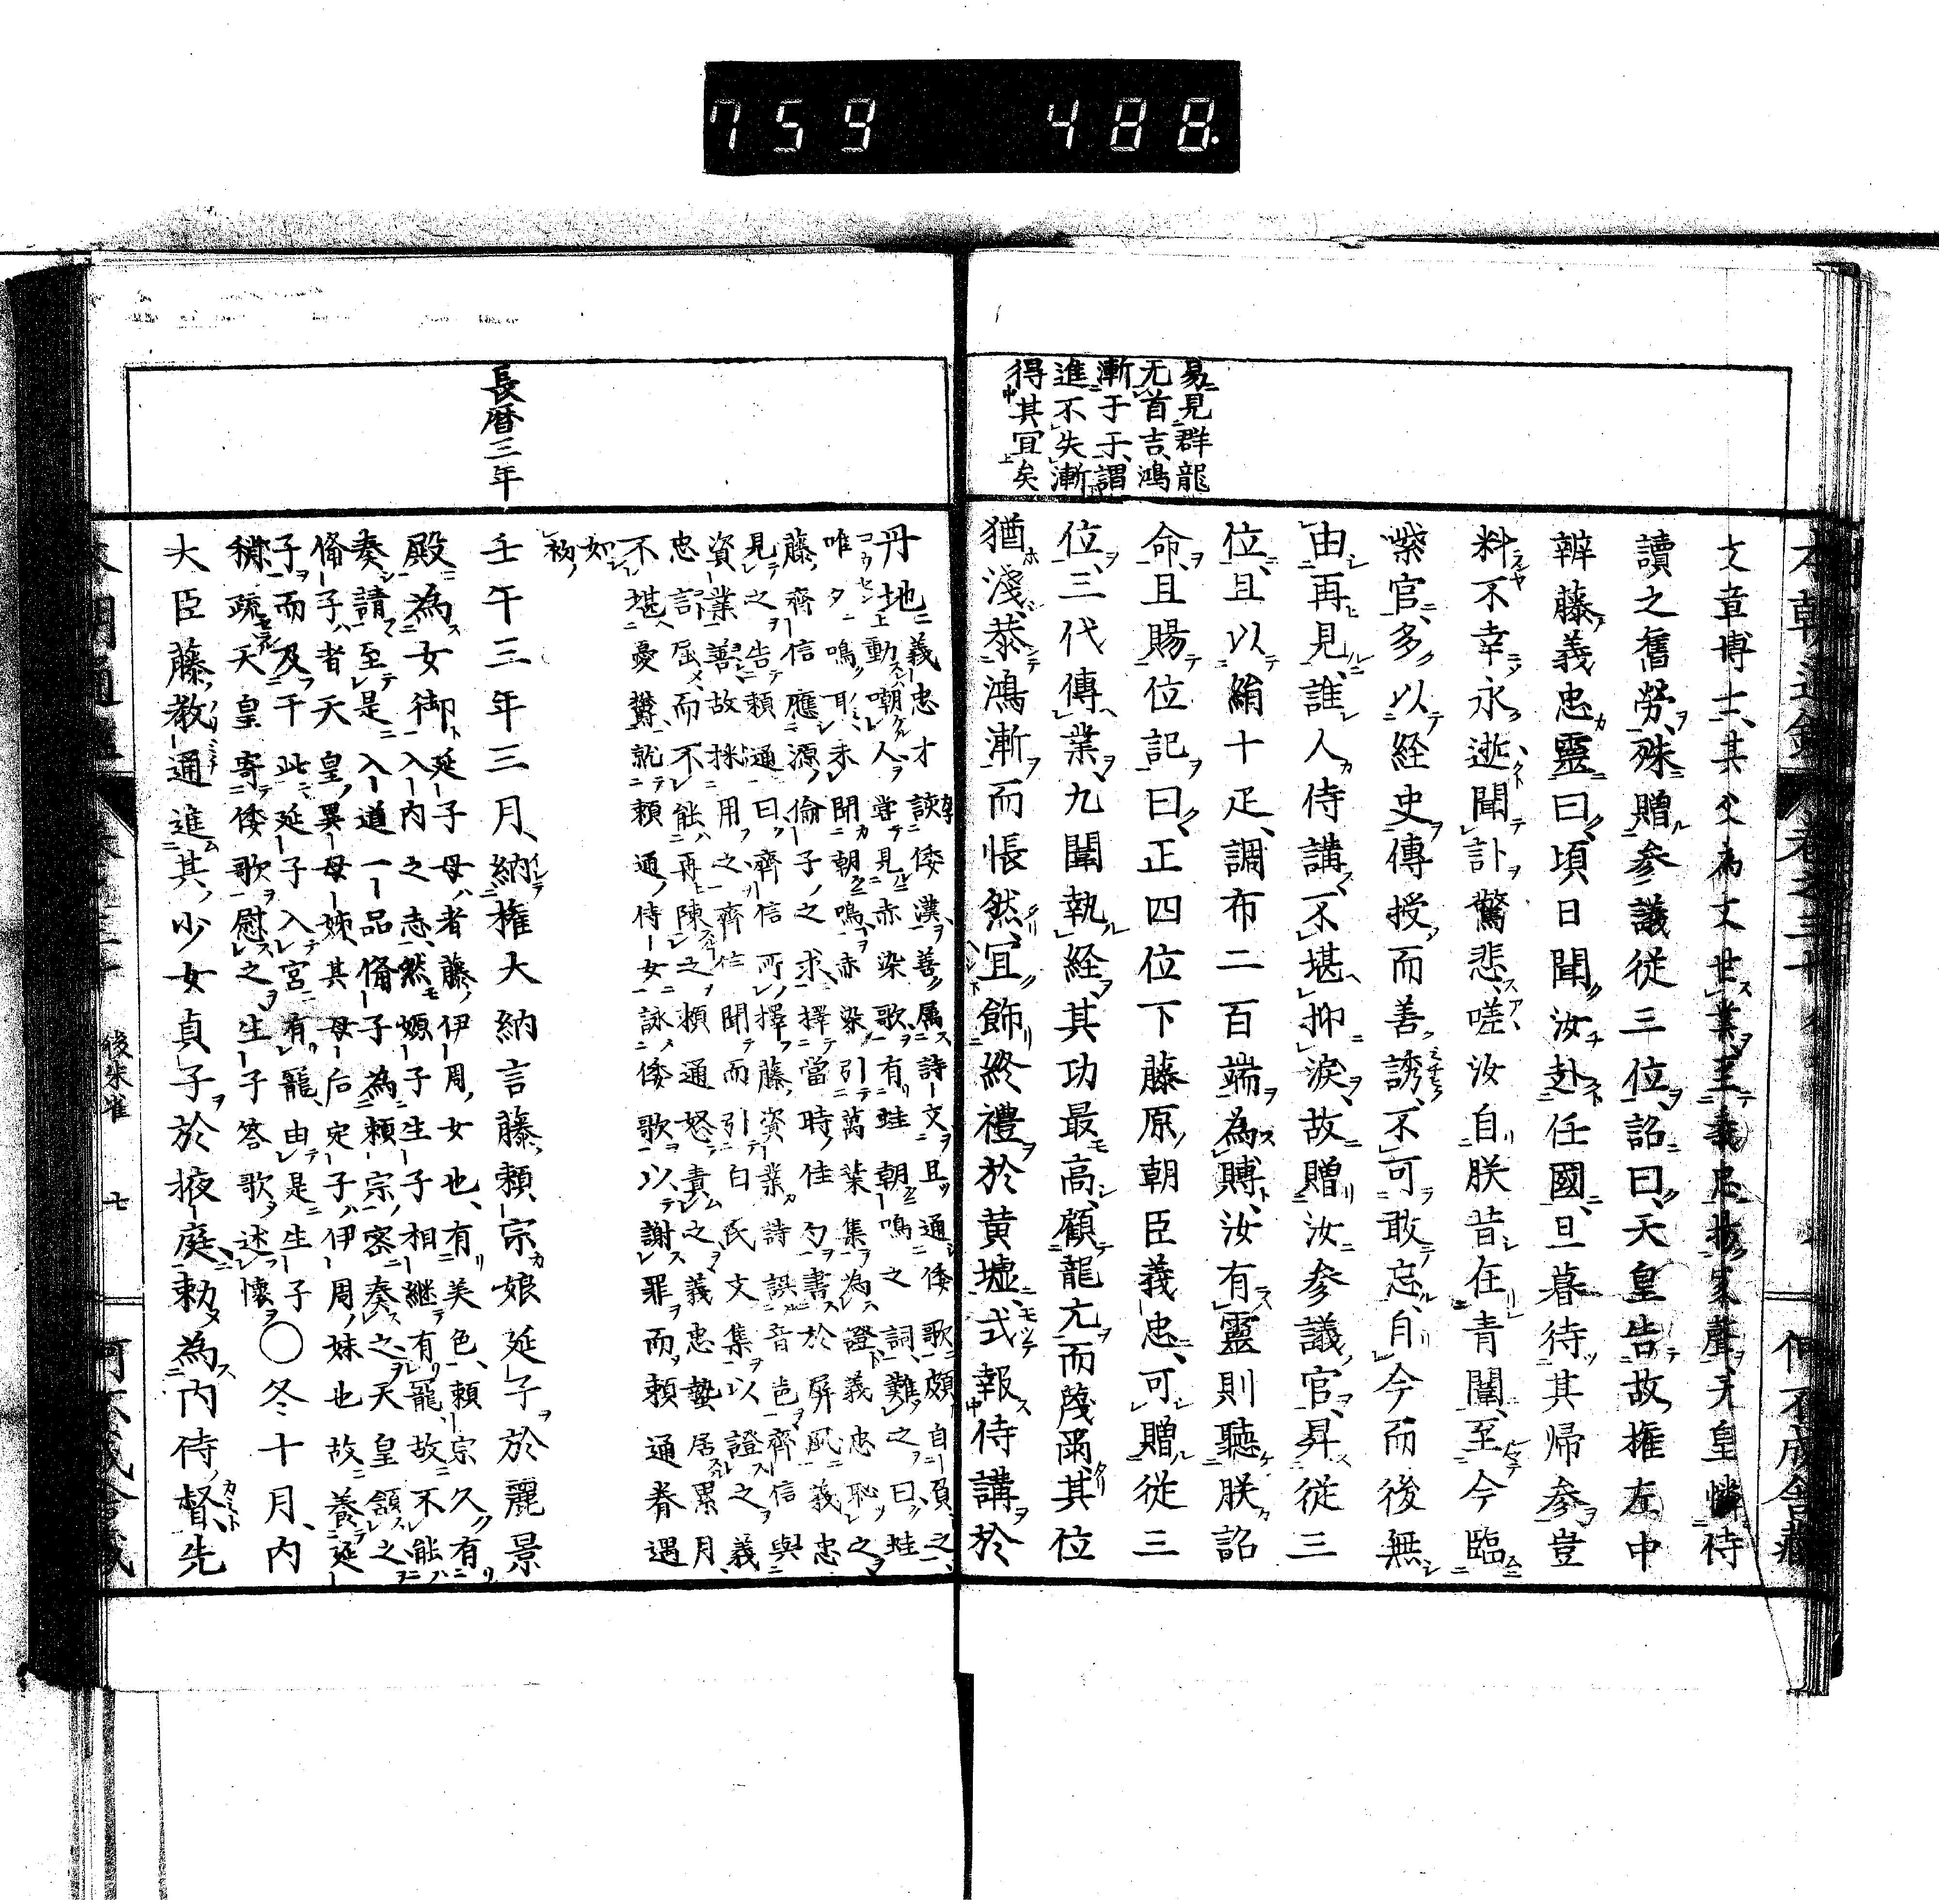 759 488
易見群龍
无首吉鴻
漸于干謂
進不失漸
得其冝矣
文章博士其父為文世業至義忠振家聲天皇憐侍
讀之舊勞殊贈参議従三位詔曰天皇告故權左中
辨藤義忠靈曰頃日聞汝赴任國旦暮待其帰参豈
料不幸永逝聞訃驚悲嗟汝自朕昔在青闈至今臨
紫官多以経史傳授而善誘不可敢忘自今而後無
由再見誰人侍講不堪抑淚故贈汝参議官昇従三
位且以絹十疋調布二百端為賻汝有靈則聽朕詔
命且賜位記曰正四位下藤原朝臣義忠可贈従三
位三代傳業九闈執経其功最高顧龍亢而陵爾其位
猶淺恭鴻漸而悵然冝飾終禮於黄墟式報侍講於
丹地義忠才諛倭漢善属詩文且通倭歌頗自負之
唯動嘲人當見赤染歌有蛙朝鳴之詞難之曰蛙
夕鳴耳未聞朝鳴赤染引萬葉集為證義忠恥之
藤齊信應源倫子之求擇當時佳句書於屏風義忠
見之告頼通曰齊信所擇藤資業詩誤音邑齊信與
資業善故採用之齊信聞而引白氏文集以證之義
忠言屈而不能再陳之頼通怒責之義忠蟄居累月
不堪憂欝就頼通侍女詠倭歌以謝罪而頼通眷遇
如
初
長曆三年
壬午三年三月納權大納言藤頼宗娘延子於麗景
殿為女御延子母者藤伊周女也有美色頼宗久有
入内之志然嫄子生子相継有寵故不能
奏請至是入道一品脩子為頼宗密奏之天皇頷之
脩子者天皇異母姊其母后定子伊周妹也故養延
子而及于此延子入宮有寵由是生子
稱疏天皇寄倭歌慰之生子答歌述懐○冬十月内
大臣藤教通進其少女貞子於掖庭勅為内侍督先
後朱雀 七